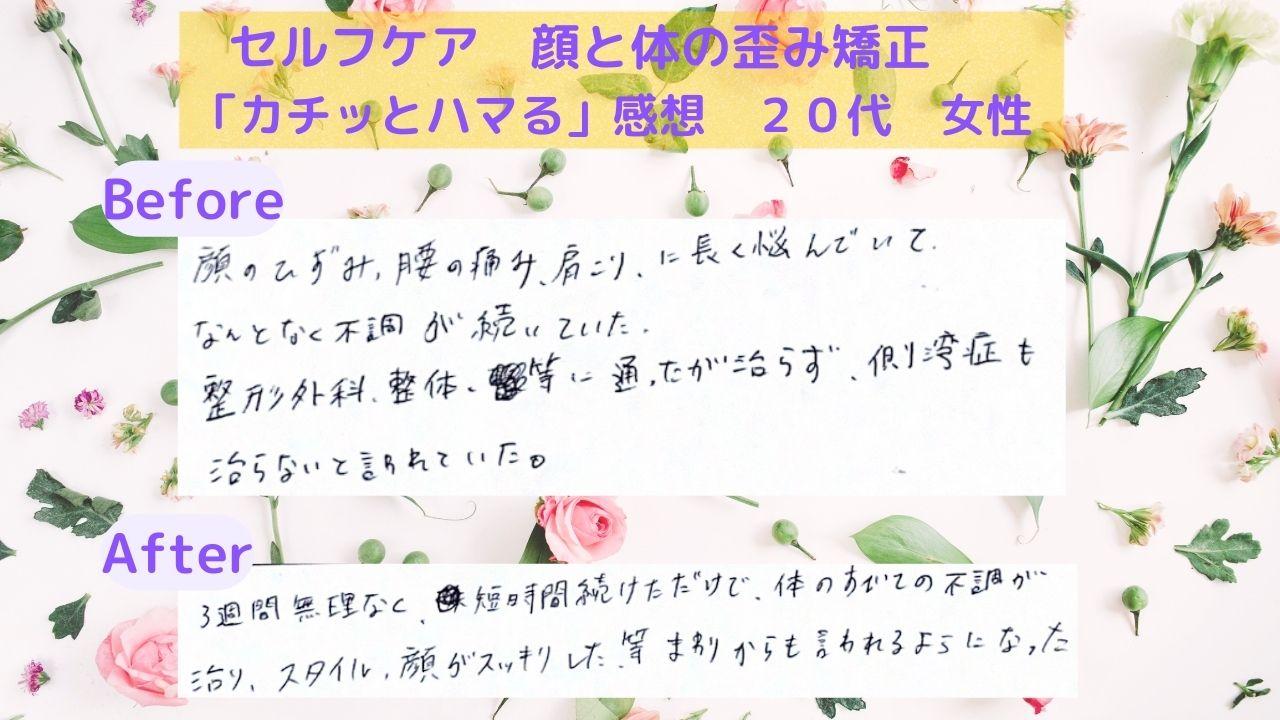 セルフケア　顔と体の歪み矯正
「カチッとハマる」感想　２０代　女性
Before
顔のひずみ,腰の痛み、肩こり、に長く悩んでいて、
なんとなく不調が続いていた。
整形外科、整体、等に通ったが治らず、側湾症も
治らないと言われていた。
After
3週間無理なく、短時間続けただけで、体のすべての不調が
治り、スタイル,顔がスッキリした、等まわりからも言われるようになった